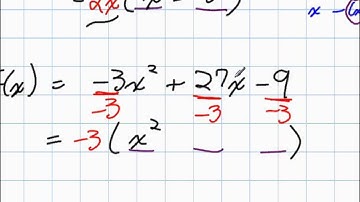 -2x(x
x - (
f(x) = -3x² + 27x - 9
-3 -3 -3
= -3(x² _ _ )